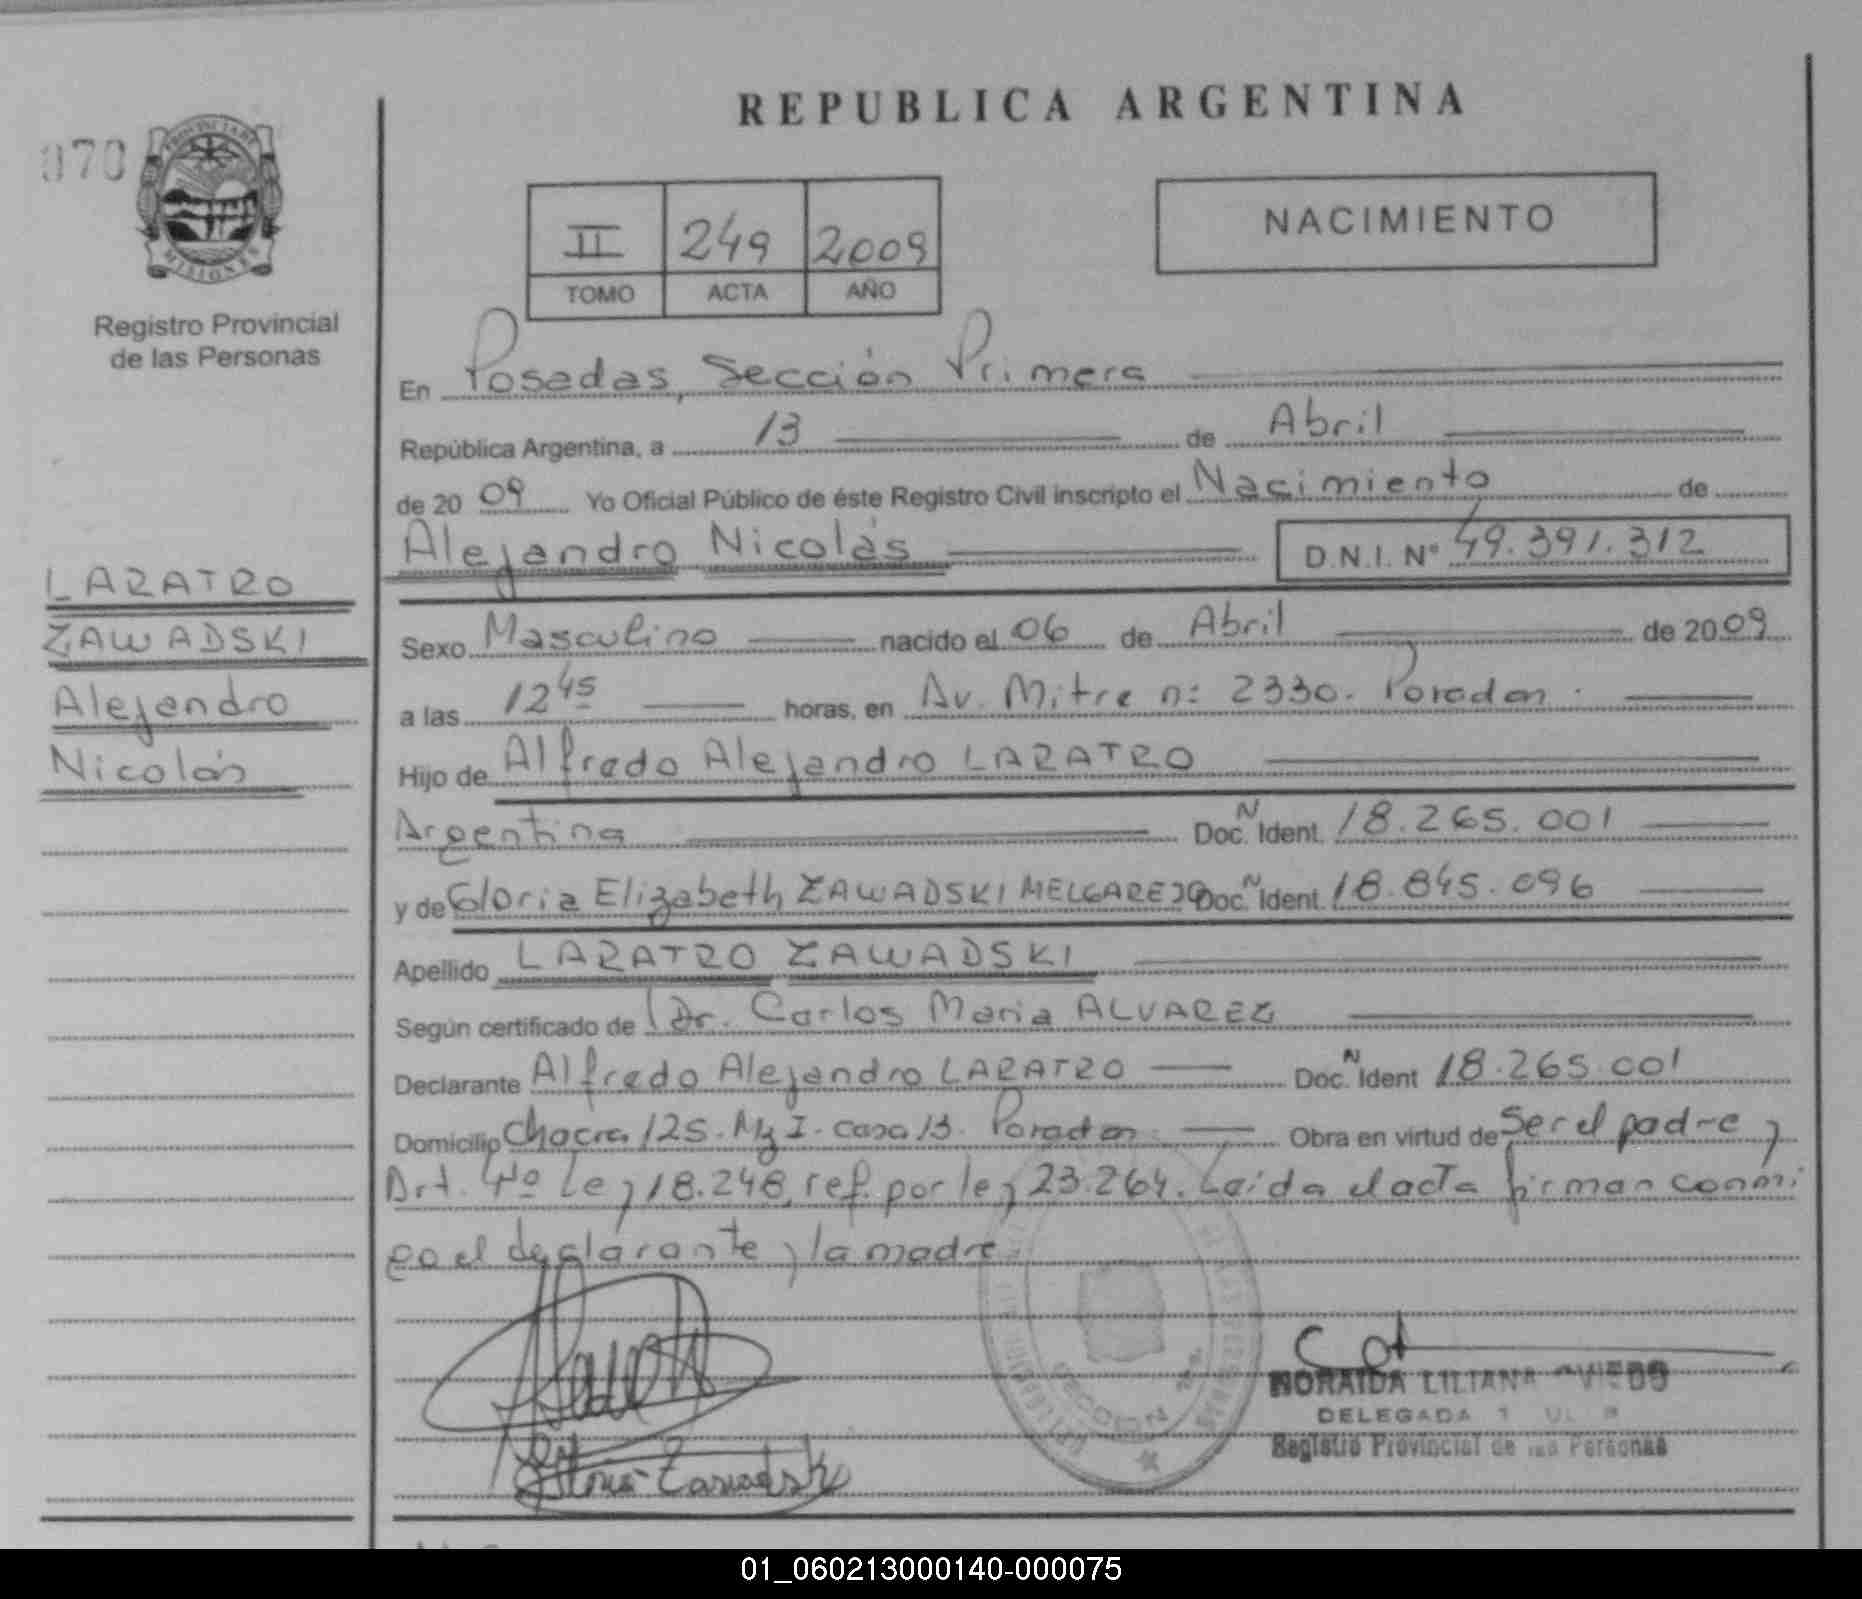 REPUBLICA ARGENTINA
070
PROVINCIA DE
MISIONES
Registro Provincial
de las Personas
II 249 2009
TOMO ACTA AÑO
NACIMIENTO
En Posadas, Sección Primera
República Argentina, a 13 de Abril
de 20 09 Yo Oficial Público de éste Registro Civil inscripto el Nacimiento de
Alejandro Nicolás D.N.I. Nº 49.391.312
LARATRO
ZAWADSKI
Alejandro
Nicolás
Sexo Masculino nacido el 06 de Abril de 2009
a las 12 45 horas, en Av. Mitre nº 2330. Posadas.
Hijo de Alfredo Alejandro LARATRO
Argentina Doc. N Ident. 18.265.001
y de Gloria Elizabeth ZAWADSKI MELGAREJO Doc. N Ident. 18.845.096
Apellido LARATRO ZAWADSKI
Según certificado de Dr. Carlos Maria ALVAREZ
Declarante Alfredo Alejandro LARATRO Doc. N Ident 18.265.001
Domicilio Chacra 125. Mz I. casa 13. Posadas. Obra en virtud de Ser el padre y
Art. 4º ley 18.248, ref. por ley 23.264. Leída el acta firman conmi
go el declarante y la madre.
Gloria Zawadski
NORAIDA LILIANA OVIEDO
DELEGADA
Registro Provincial de las Personas
SECCION
01_060213000140-000075